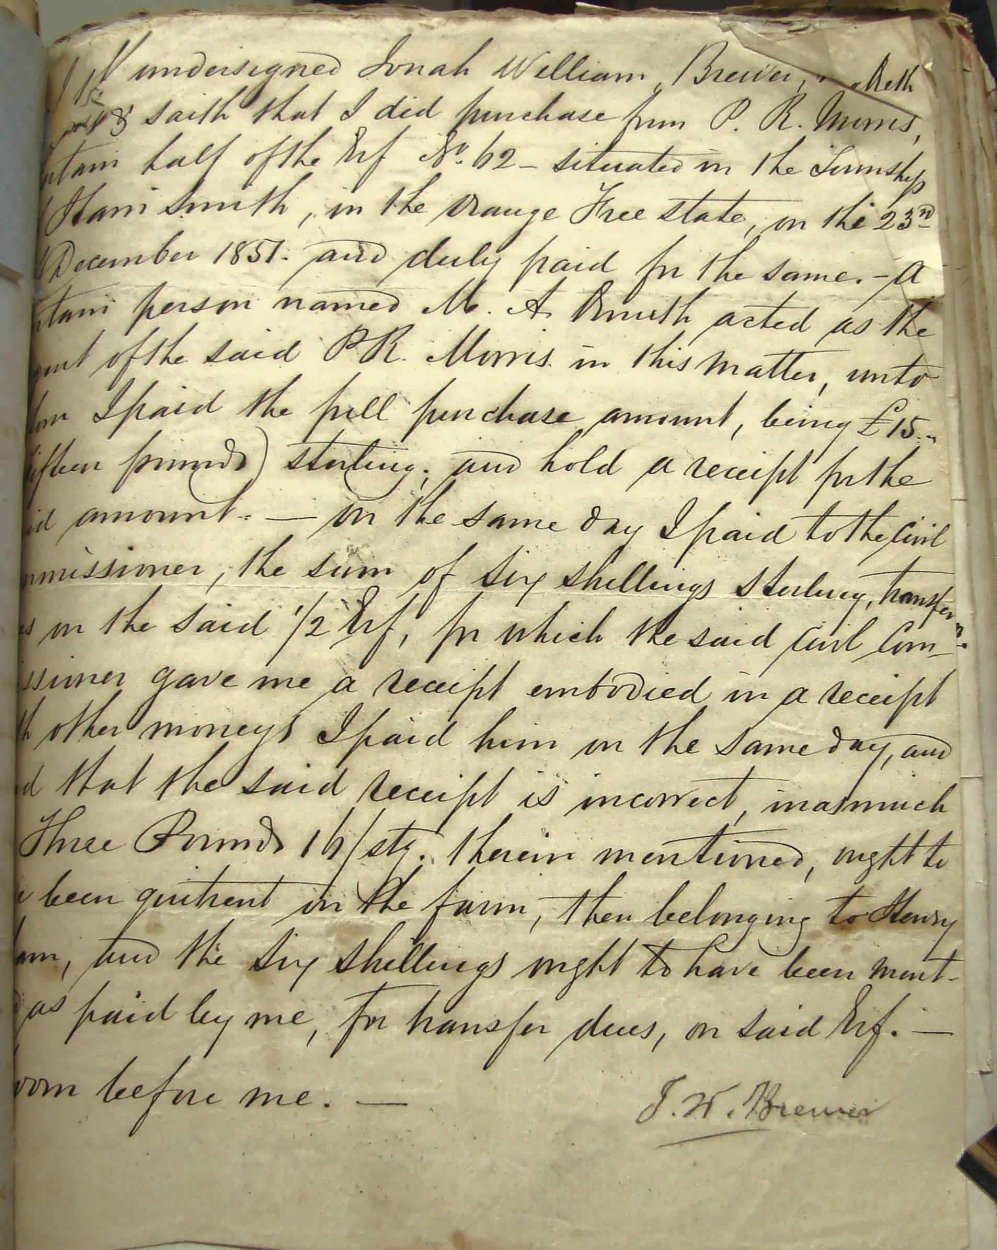 I undersigned Jonah William Brewer, Maketh
& saith that I did purchase from P. R. Morris,
rtain half of the Erf No. 62 – situated in the Township
Harrismith, in the Orange Free State, on the 23rd
December 1851. and duly paid for the same. – A
rtain person named M. A. Smith acted as the
gent of the said P R. Morris in this matter, unto
hom I paid the full purchase amount, being £15..
ifteen pounds) sterling; and hold a receipt for the
id amount. — On the same day I paid to the Civil
mmissioner, the sum of six shillings sterling, transfer
es on the said 1/2 Erf, for which the said Civil Com-
issioner gave me a receipt embodied in a receipt
th other moneys I paid him on the same day, and
d that the said receipt is incorrect, inasmuch
Three Pounds 16/stg. therein mentioned, ought to
e been quitrent on the farm, then belonging to Henry
am, and the six shillings ought to have been ment-
d as paid by me, for transfer dues, on said Erf. —
worn before me. —
J. W. Brewer